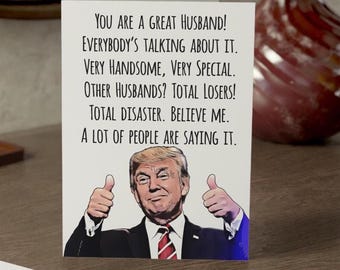 You are a great Husband!
Everybody's talking about it.
Very Handsome, Very Special.
Other Husbands? Total Losers!
Total disaster. Believe me.
A lot of people are saying it.